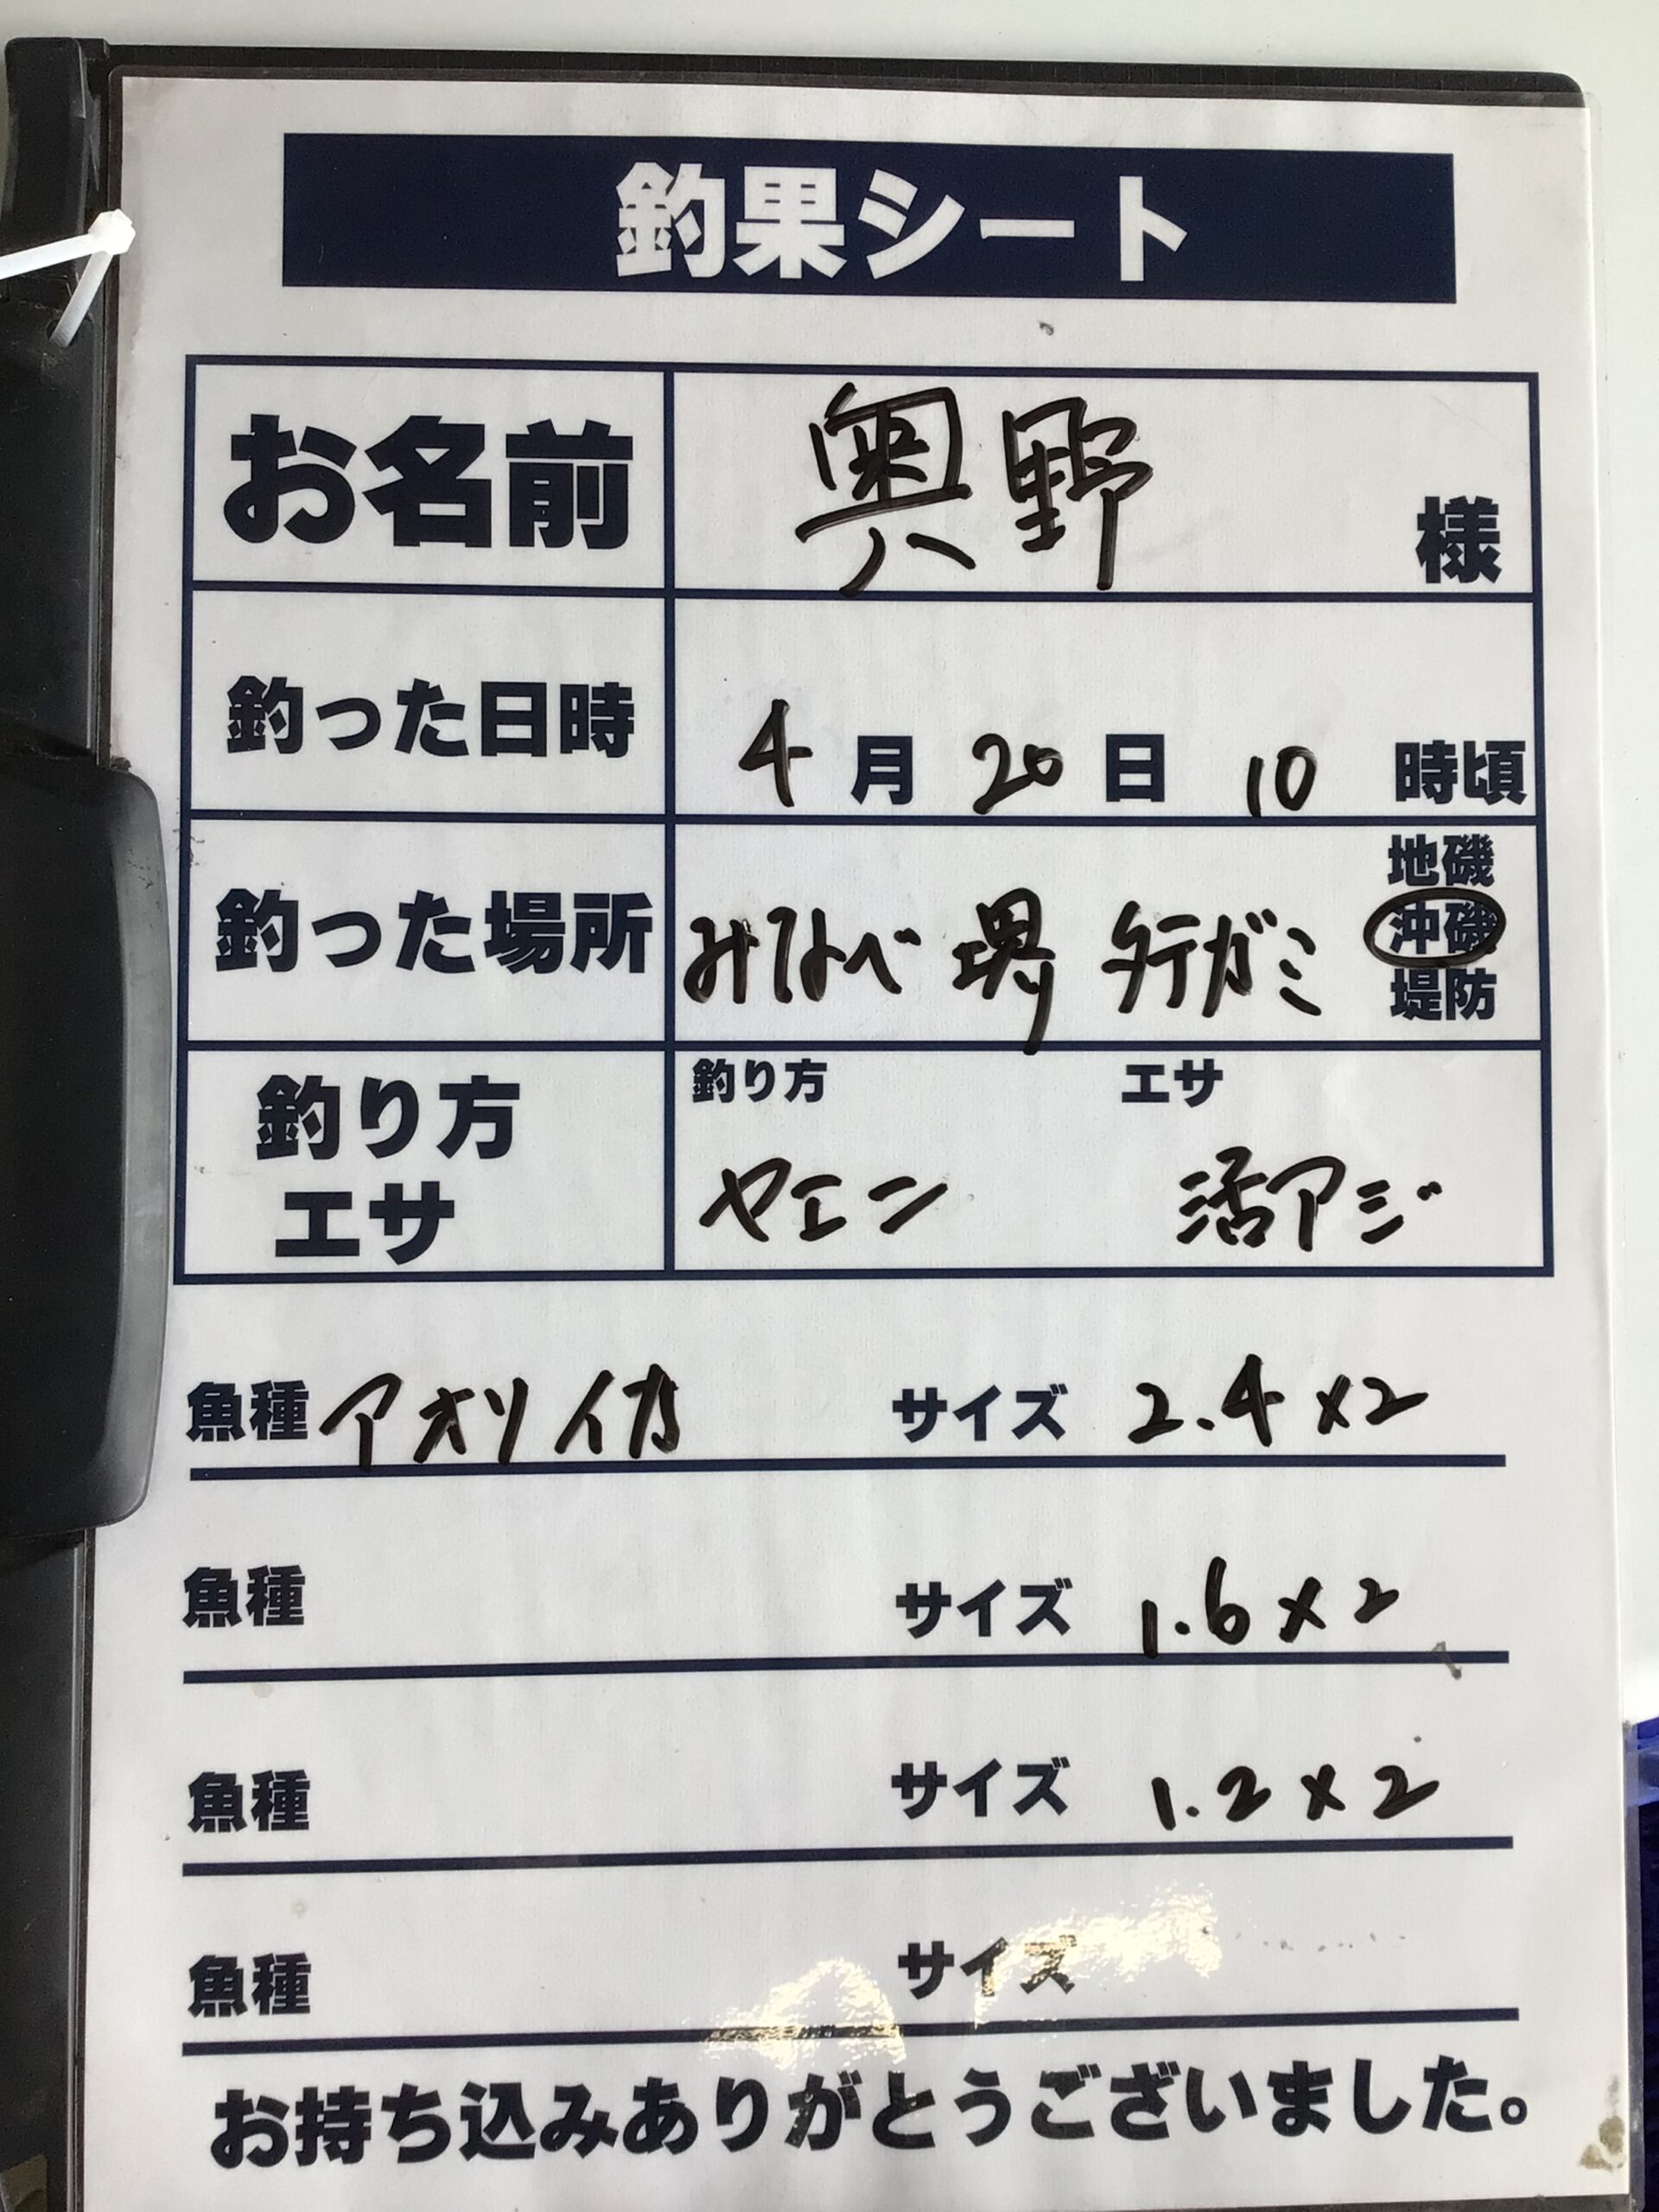 釣果シート
お名前 奥野 様
釣った日時 4月20日10時頃
地磯
釣った場所 みなべ 堺 タテガミ 沖磯
堤防
釣り方 エサ
釣り方
エサ
ヤエン 活アジ
魚種 アオリイカ サイズ 2.4×2
魚種 サイズ 1.6×2
魚種 サイズ 1.2×2
魚種 サイズ
お持ち込みありがとうございました。